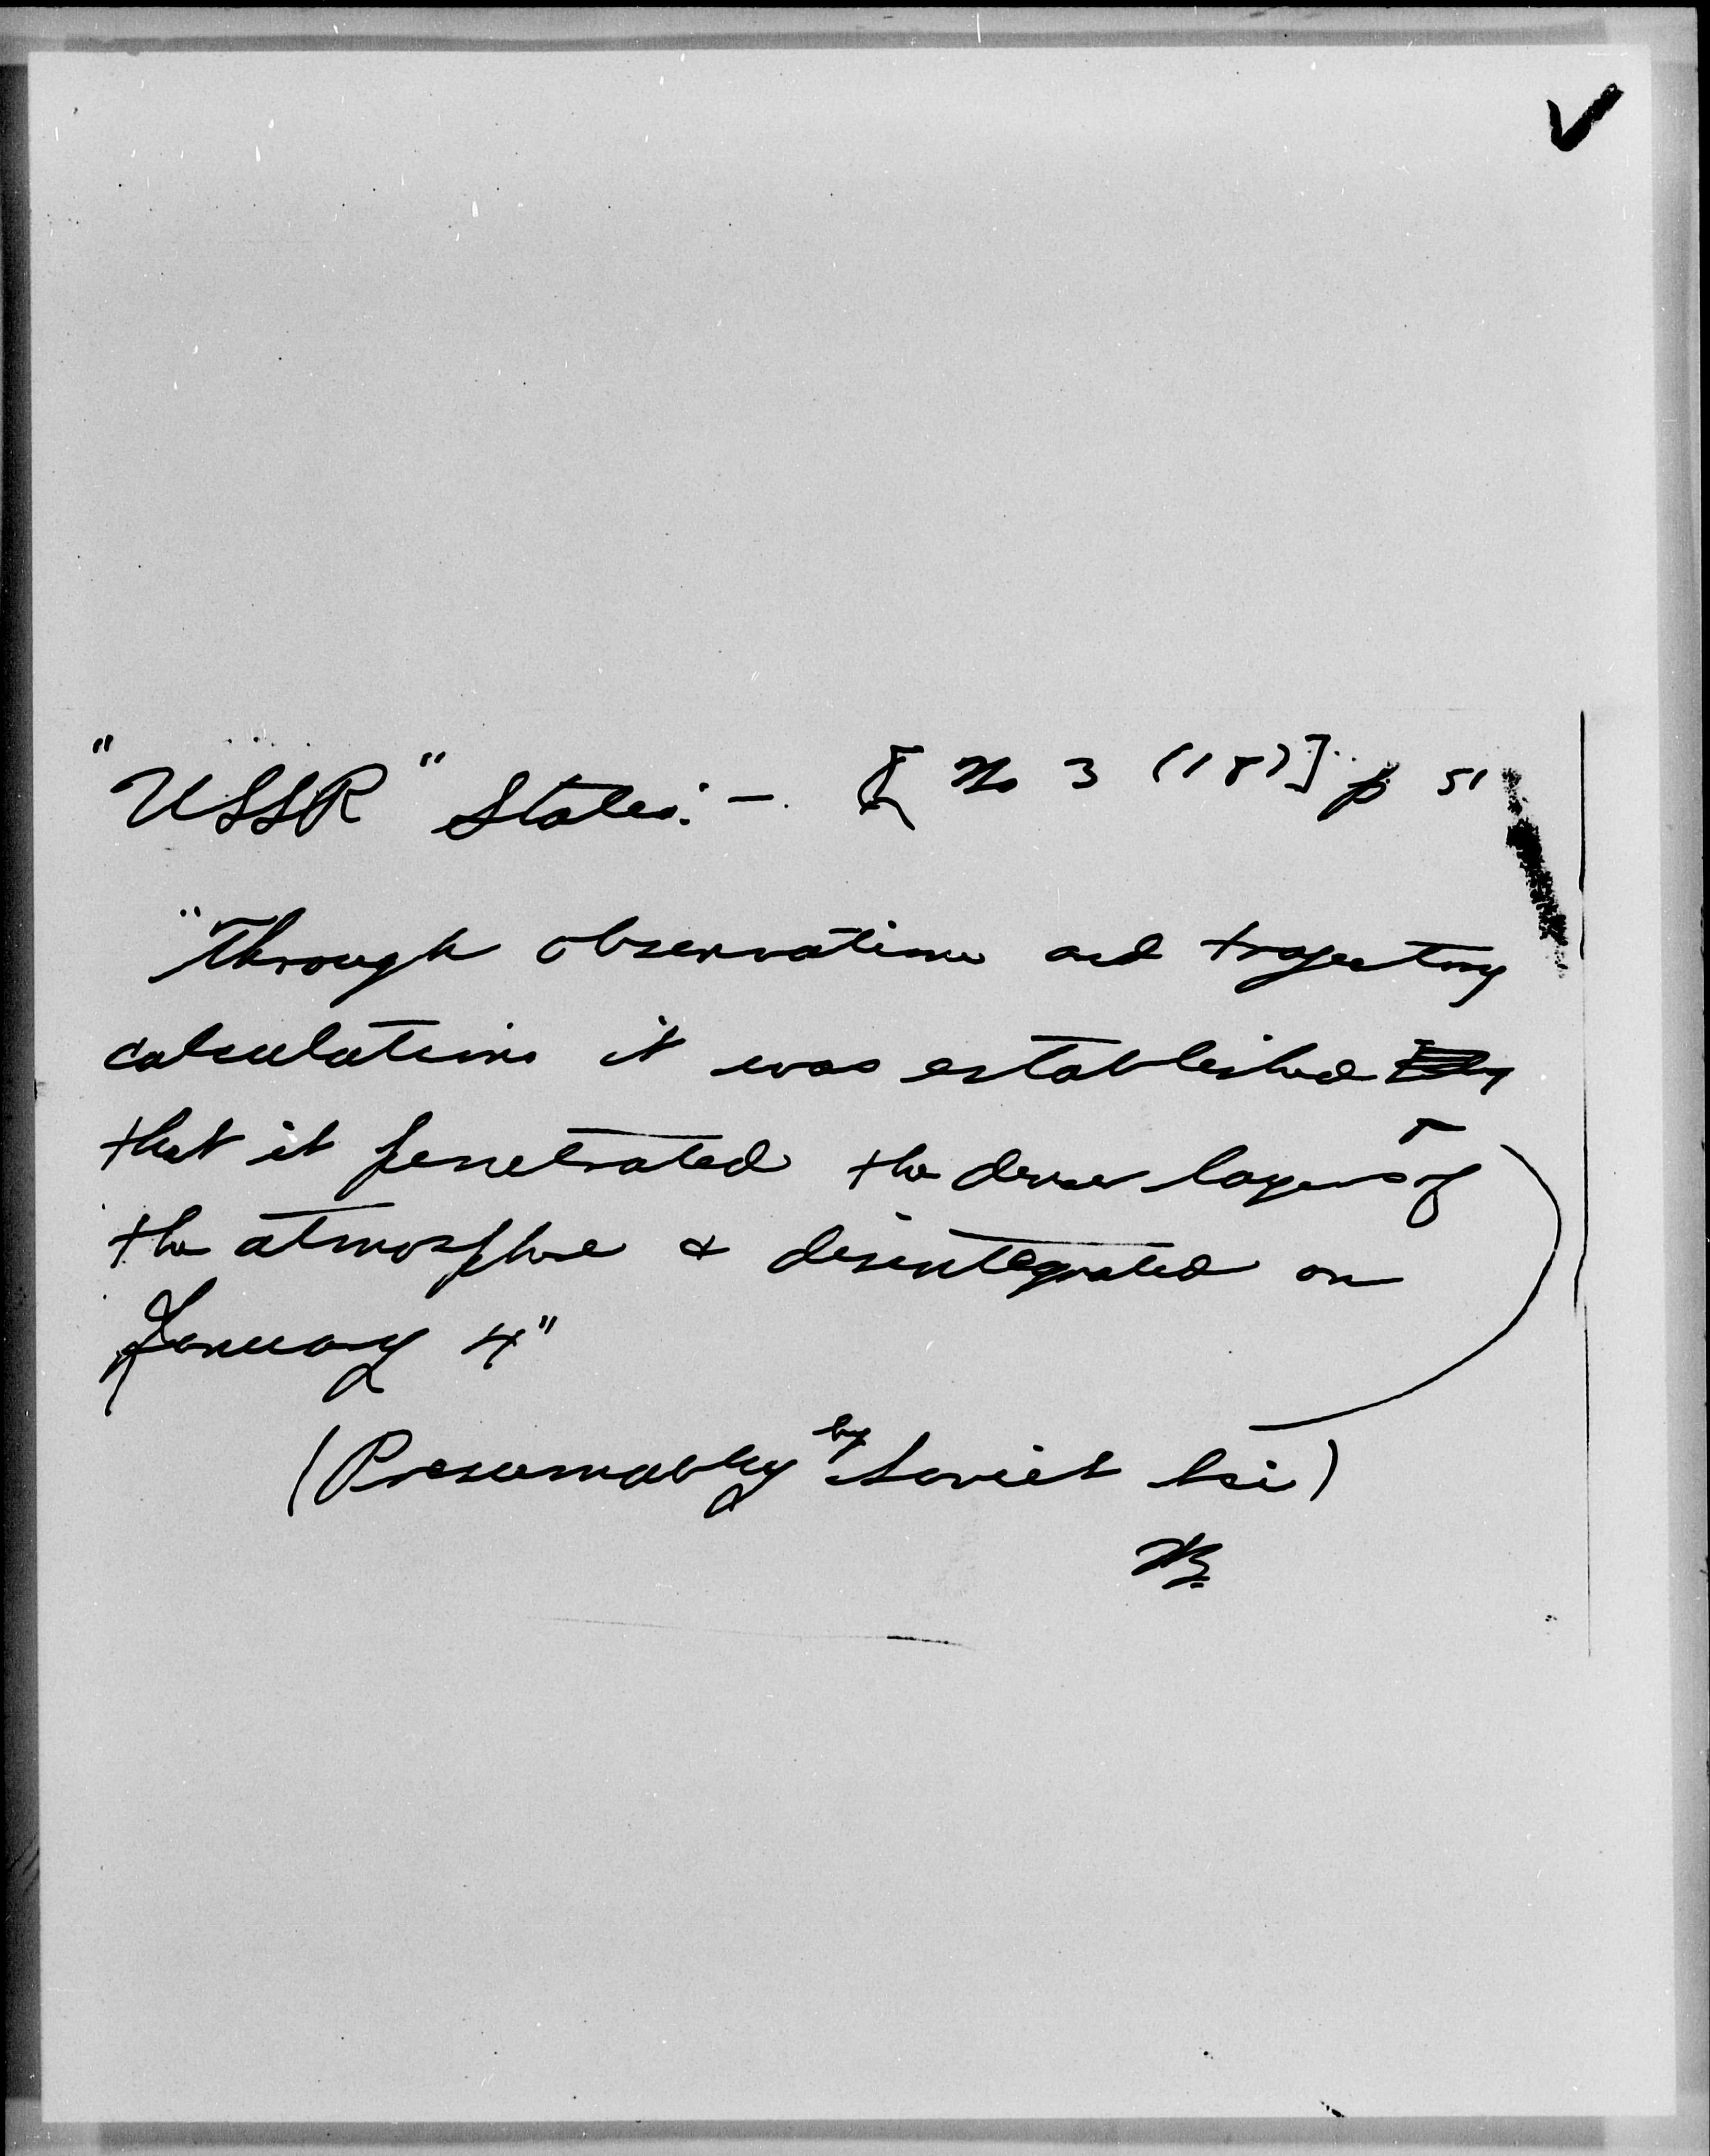 "USSR" States: - [ No 3 (18)] p 51
"Through observations and trajectory
calculations it was established
that it penetrated the denser layers of
the atmosphere & disintegrated on
January 4"
(Presumably by Soviet sci)